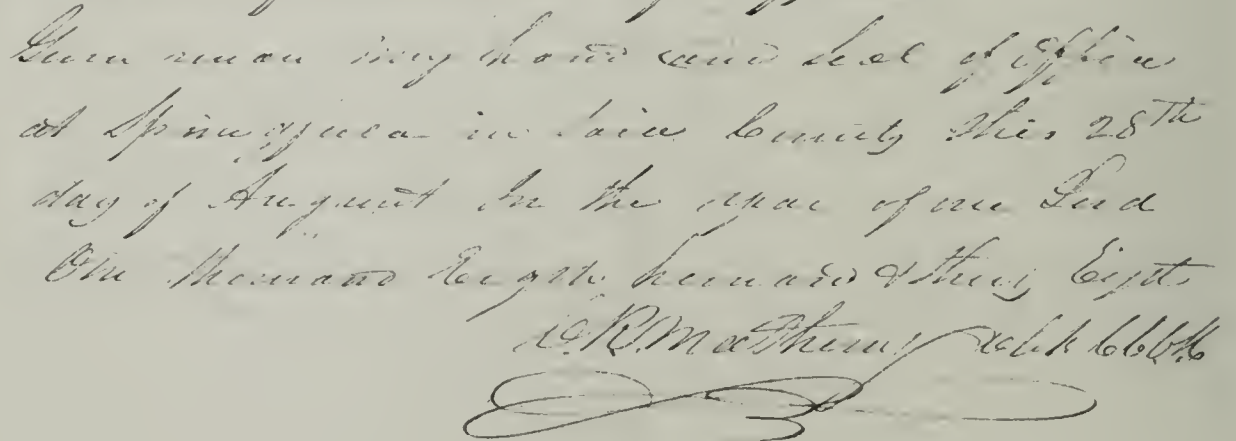 Given under my hand and seal of office
at Springfield in said County this 28th
day of August In the year of our Lord
One thousand Eight hundred & thirty Eight
C.R. Matheny Clk